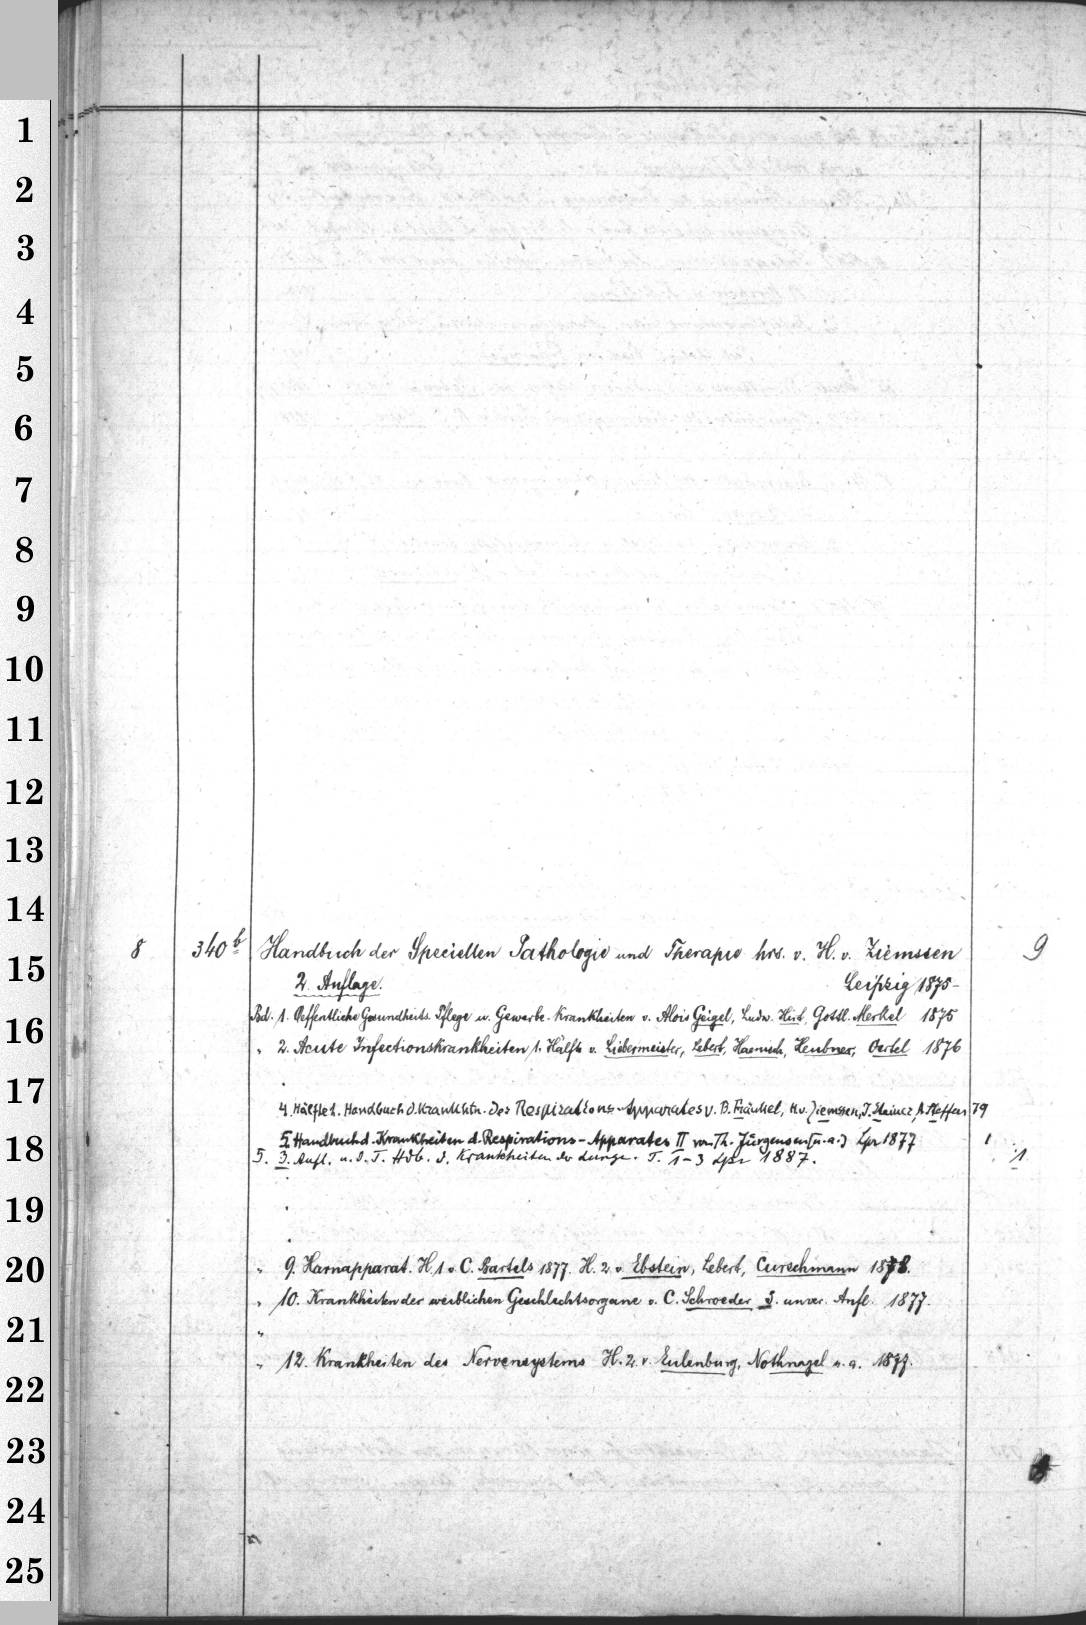 1
2
3
4
5
6
7
8
9
10
11
12
13
14
8 340 b Handbuch der Speciellen Pathologie und Therapie hrs. v. H. v. Ziemssen 9
15
2. Auflage. Leipzig 1875-
Bd. 1. Oeffentliche Gesundheits Pflege u. Gewerbe-Krankheiten v. Alois Geigel, Ludw. Hirt, Gottl. Merkel 1875
16
" 2. Acute Infectionskrankheiten 1. Hälfte v. Liebermeister, Lebert, Haenisch, Heubner, Oertel 1876
17
4. Hälfte 1. Handbuch d. Krankhtn. des Respirations-Apparates v. B. Fränkel, H. v. Ziemssen, J. Steiner, A. Steffen 79
18
5. Handbuch d. Krankheiten d. Respirations-Apparates II von Th. Jürgensen [u. a.] Lpz 1877 1
5. 3. Aufl. u. d. T. Hdb. d. Krankheiten der Lunge. T. 1-3 Lpz 1887. 1
19
20
" 9. Harnapparat. H. 1 v. C. Bartels 1877. H. 2 v. Ebstein, Lebert, Curschmann 1878.
" 10. Krankheiten der weiblichen Geschlechtsorgane v. C. Schroeder 3. unver. Aufl. 1877.
21
"
" 12. Krankheiten des Nervensystems H. 2 v. Eulenburg, Nothnagel u. a. 1877.
22
23
24
25